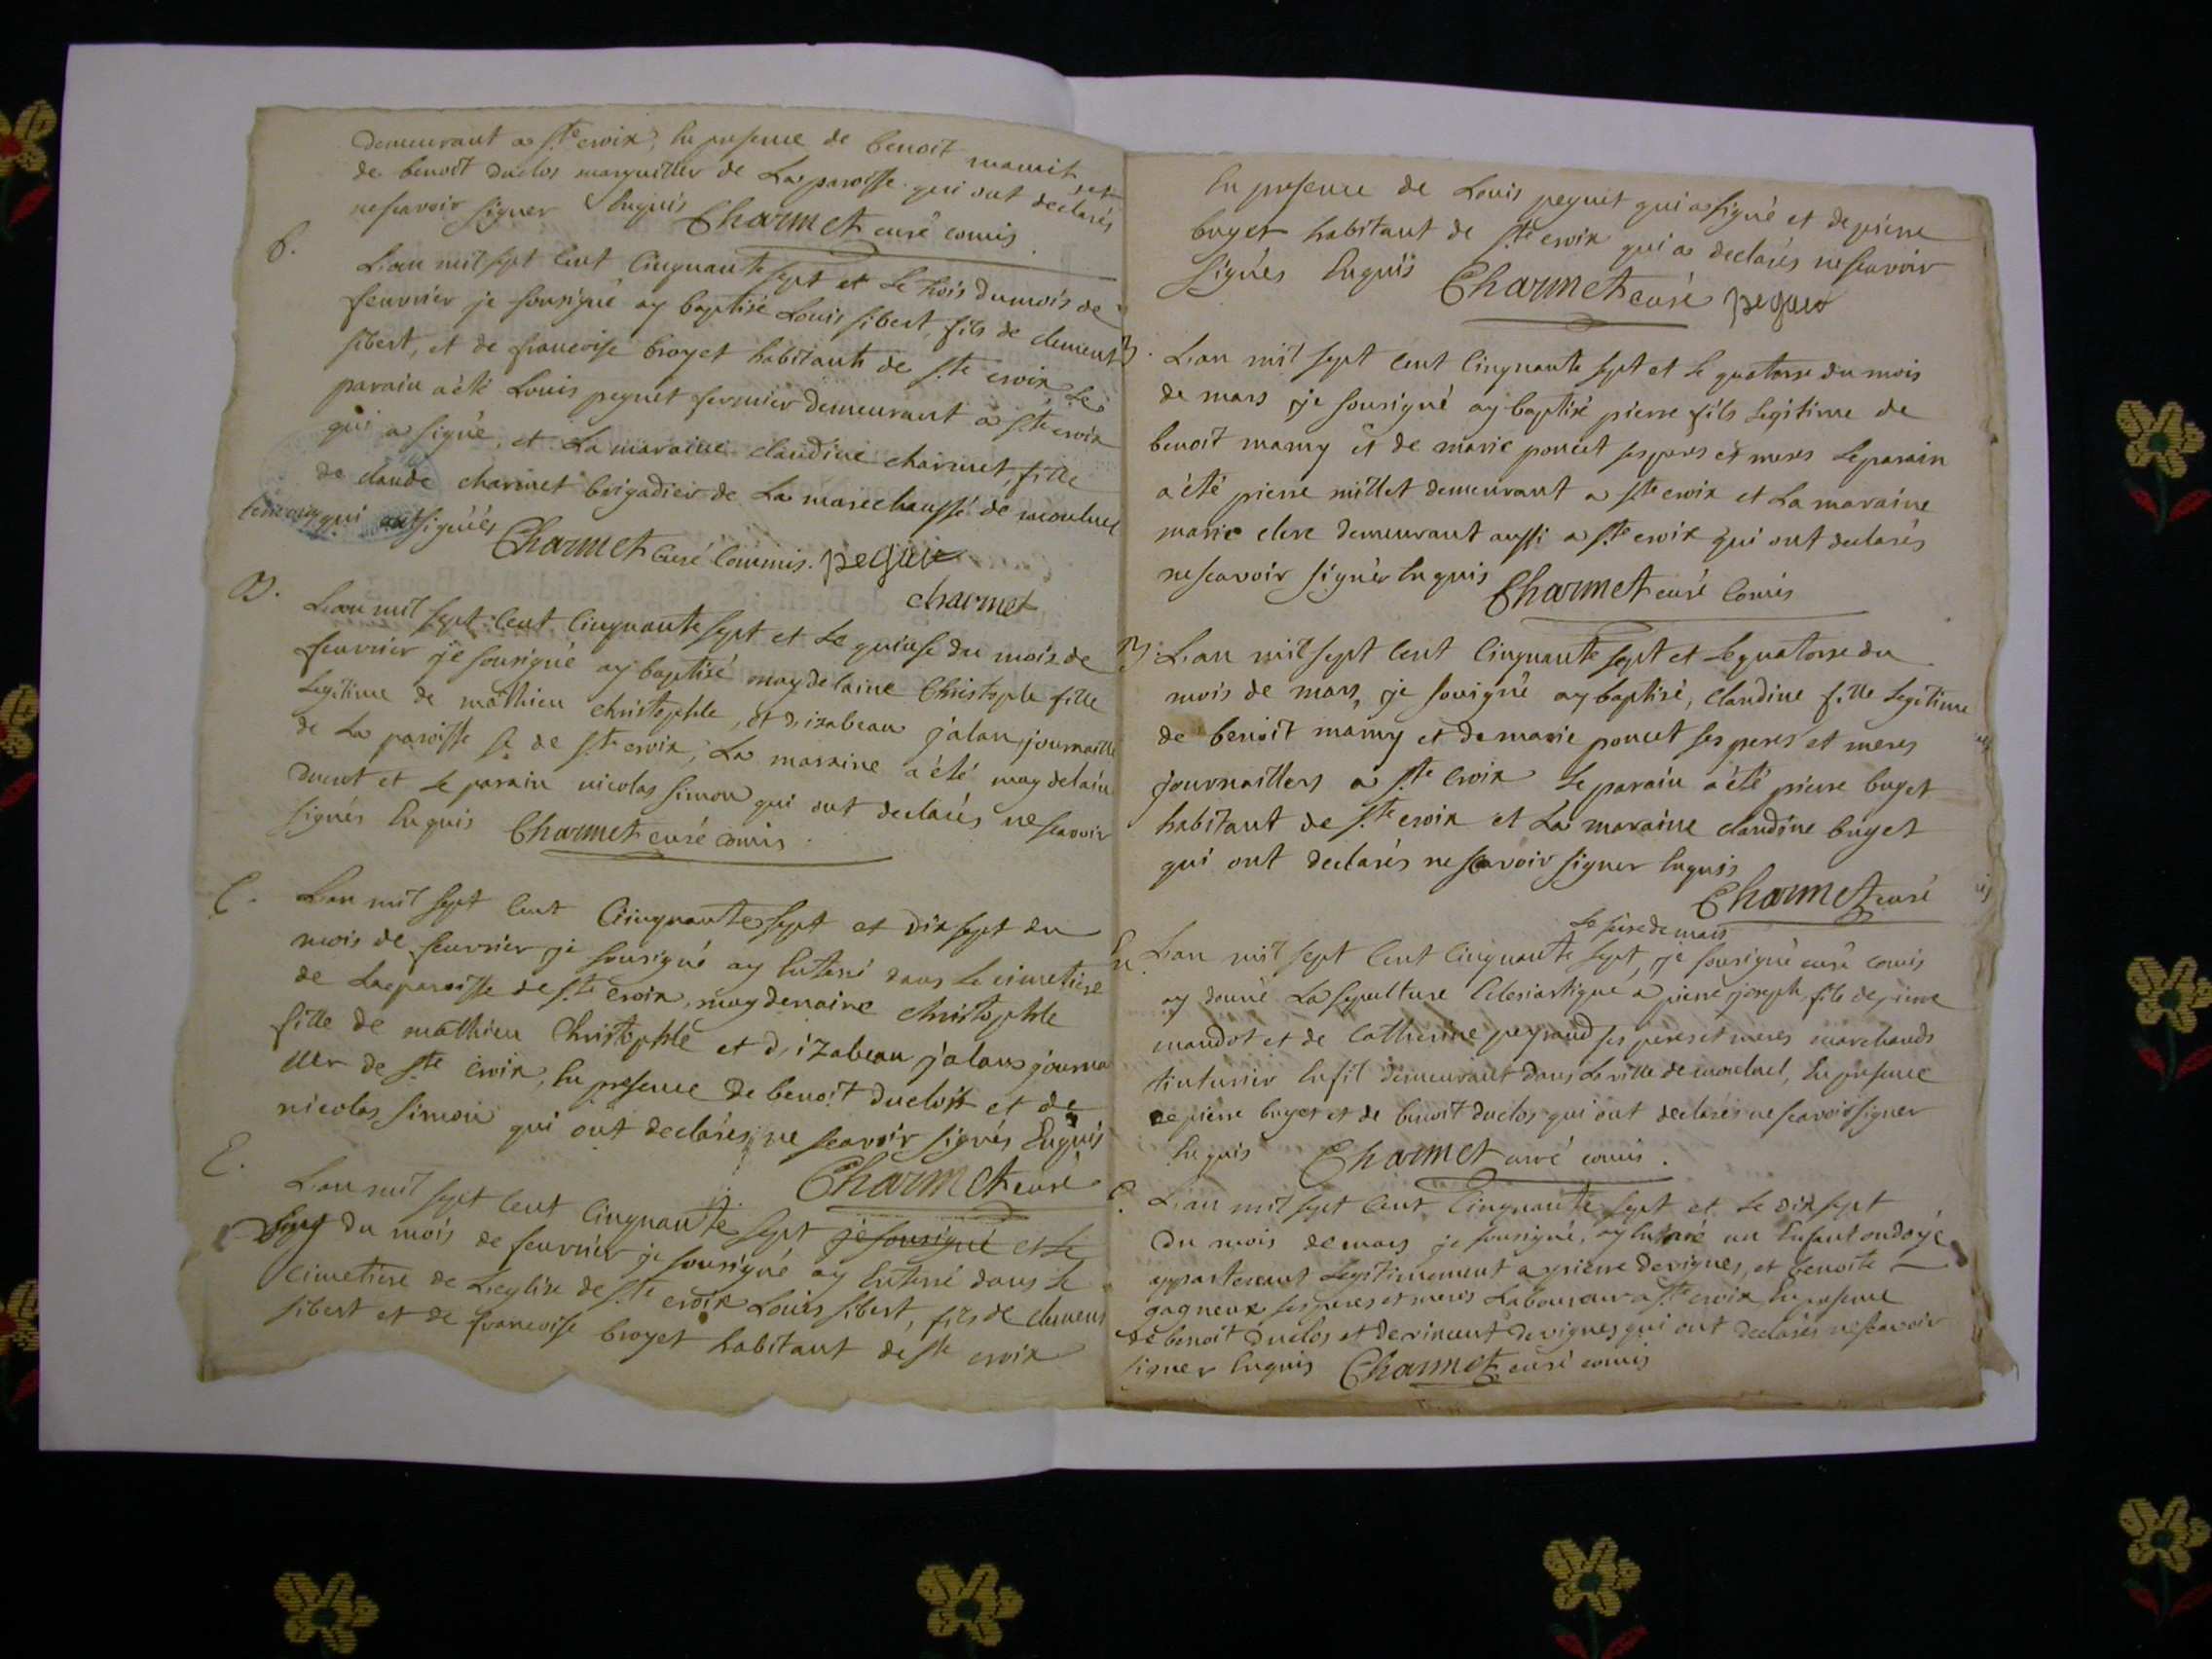 demeurant a Ste croix, En presence de benoit mamit
de benoit duclos marguillier de La paroisse qui ont declarés
ne scavoir signer Enquis Charmet curé comis
B.
L'an mil sept cent Cinquante sept et Le trois du mois de
feuvrier je sousigné ay baptisé Louis sibert, fils de clement
sibert, et de francoise broyet habitants de Ste croix, Le
parain a été Louis peguet fermier demeurant a Ste croix
qui a signé, et La maraine claudine charmet, fille
de claude charmet brigadier de La marechaussé de
qui ont signéés
Charmet Curé Commis. peguet
charmet
B.
L'an mil sept cent Cinquante sept et Le quinse du mois de
feuvrier je sousigné ay baptisé magdelaine Christophle fille
Legitime de mathieu christophle, et d'izabeau jalan, journaille
de La paroisse de Ste croix, La maraine a été magdelain
ducrot et Le parain nicolas simon qui ont declarés ne scavoir
signés Enquis Charmet curé comis
E.
L'an mil sept cent Cinquante sept et dix sept du
mois de feuvrier je sousigné ay Enterré dans Le cimetiere
de La paroisse de Ste Croix, magdenaine christophle
fille de mathieu Christophle et d'izabeau jalans journa
ller de Ste Croix, En presence de benoit duclost et de
nicolas simon qui ont declarés ne scavoir signés Enquis
Charmet curé
E.
L'an mil sept cent Cinquante sept je sousigné et Le
vingt du mois de feuvrier je sousigné ay Enterré dans Le
cimetiere de L'eglise de Ste croix Louis sibert, fils de clement
sibert et de francoise broyet habitant de Ste croix
En presence de Louis peguet qui a signé et de pierre
buget habitant de Ste croix qui a declarés ne scavoir
signés Enquis Charmet curé peguet
B.
L'an mil sept cent Cinquante sept et Le quatorse du mois
de mars je sousigné ay baptisé pierre fils Legitime de
benoit mamy et de marie poncet ses peres et meres Le parain
a été pierre millet demeurant a Ste croix et La maraine
marie clere demeurant aussi a Ste croix qui ont declarés
ne scavoir signér Enquis Charmet curé Comis
B.
L'an mil sept cent Cinquante sept et Le quatorse du
mois de mars, je sousigné ay baptisé, claudine fille Legitime
de benoit mamy et de marie poncet ses peres et meres
journaillers a Ste Croix Le parain a été pierre buget
habitant de Ste croix et La maraine claudine buget
qui ont declarés ne scavoir signer Enquis
Charmet curé
Le seise de mars
En
L'an mil sept cent Cinquante sept, je sousigné curé comis
ay donné La sepulture Eclesiastique a pierre joseph, fils de pierre
mandot et de Catherine peyraud ses peres et meres marchands
tinturier En fil demeurant dans La ville de En presence
de pierre buget et de benoit duclos qui ont declarés ne scavoir signer
Enquis Charmet curé comis.
E.
L'an mil sept cent Cinquante sept et Le dix sept
du mois de mars je sousigné, ay Enterré un Enfant ondoyé
appartenant Legitimement a pierre devignes, et benoite
gagneux ses peres et meres Laboureur a Ste croix, En presence
de benoit duclos et de vincent devignes qui ont declarés ne scavoir
signer Enquis Charmet curé comis